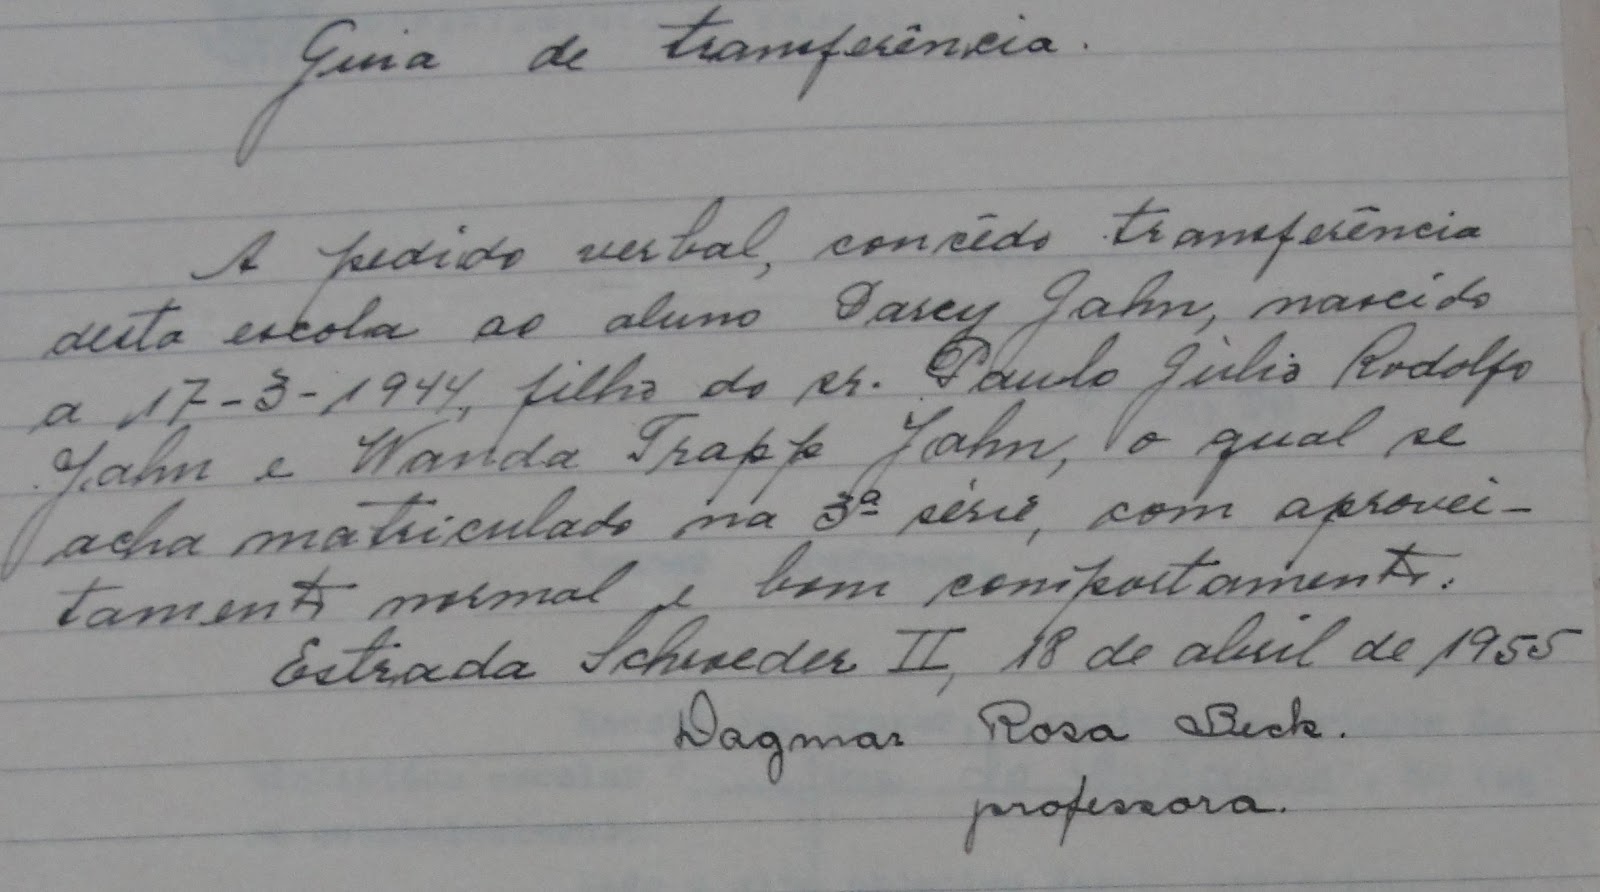 Guia de transferência.
A pedido verbal, concêdo transferência
desta escola ao aluno Darcy Jahn, nascido
a 17-3-1944, filho do sr. Paulo Júlio Rodolfo
Jahn e Wanda Trapp Jahn, o qual se
acha matriculado na 3ª série, com aprovei-
tamento normal e bom comportamento.
Estrada Schroeder II, 18 de abril de 1955
Dagmar Rosa Beck.
professora.